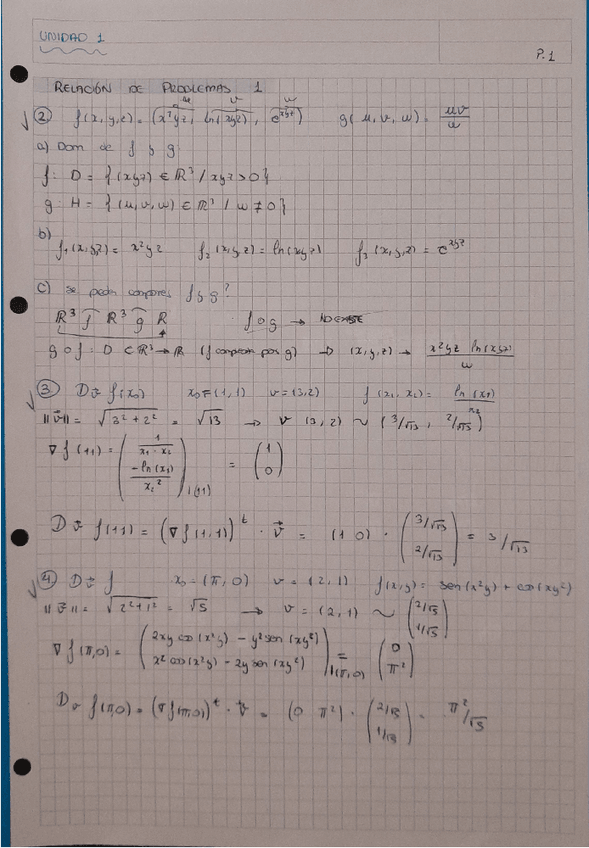 UNIDAD 1
P.1
RELACIÓN DE PROBLEMAS 1
② f(x,y,z) = (x²yz, ln(xyz), e^{xyz}) g(u,v,w) = uv/w
a) Dom de f y g:
f: D = {(xyz) ∈ ℝ³ / xyz > 0}
g: H = {(u,v,w) ∈ ℝ³ / w ≠ 0}
b)
f₁(x,y,z) = x²yz f₂(x,y,z) = ln(xyz) f₃(x,y,z) = e^{xyz}
c) se pueden componer f y g?
ℝ³ f ℝ³ g ℝ f o g → NO EXISTE
g o f: D ⊂ ℝ³ → ℝ (f compuesta por g) → (x,y,z) → x²yz ln(xyz) / w
③ D_v f(x₀) x₀ = (1,1) v = (3,2) f(x₁,x₂) = ln(x₁)/x₂
||v|| = √(3²+2²) = √13 → v (3,2) ~ (3/√13, 2/√13)
∇f(11) = (1/(x₁·x₂), -ln(x₁)/x₂²)|(11) = (1, 0)
D_v f(11) = (∇f(1,1))^t · v = (1 0) · (3/√13, 2/√13) = 3/√13
④ D_v f x₀ = (π,0) v = (2,1) f(x,y) = sen(x²y) + cos(xy²)
||v|| = √(2²+1²) = √5 → v = (2,1) ~ (2/√5, 1/√5)
∇f(π,0) = (2xy cos(x²y) - y² sen(xy²), x² cos(x²y) - 2y sen(xy²))|(π,0) = (0, π²)
D_v f(π,0) = (∇f(π,0))^t · v = (0 π²) · (2/√5, 1/√5) = π²/√5